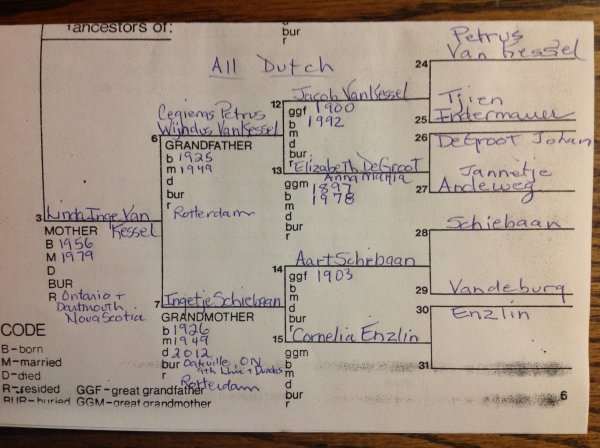 ancestors of:
bur
r
All Dutch
Petrus
Van Kessel
24
12
Jacob VanKessel
ggf 1900
b 1992
m
d
bur
r
Tjien
25
26
DeGroot Johan
6
Wijndus VanKessel
GRANDFATHER
b 1925
m 1949
d
bur
r
Rotterdam
13
Elizabeth DeGroot
Anna Maria
ggm 1897
b 1978
m
d
bur
r
Jannetje
27 Andeweg
3
Linda Inge Van
Kessel
MOTHER
B 1956
M 1979
D
BUR
R Ontario +
Dartmouth
Nova Scotia
28
Schiebaan
14
Aart Schiebaan
ggf 1903
b
m
d
bur
r
29
Vandeburg
30
Enzlin
7
Ingetje Schiebaan
GRANDMOTHER
b 1926
m 1949
d 2012
bur Oakville, ON
4th Line + Dundas
r Rotterdam
15
Cornelia Enzlin
ggm
b
m
d
bur
r
31
CODE
B-born
M-married
D-died
R-resided GGF-great grandfather
BUR-buried GGM-great grandmother
6